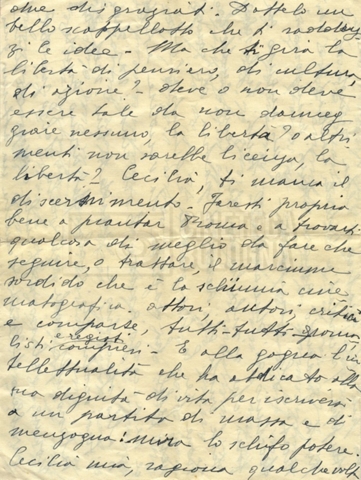 due disgraziati. Dattelo un
bello scappellotto che ti raddriz
zi le idee. - Ma che ti gira la
libertà di pensiero, di cultura,
di azione? - deve o non deve
essere tale da non danneg
giare nessuno, la libertà? o altri
menti non sarebbe licenza, la
libertà? Cecilia, ti manca il
discernimento. Faresti proprio
bene a piantar Roma e a trovarti
qualcosa di meglio da fare che
seguire, o trattare, il marciume
sordido che è la schiuma cine
matografica. attori, autori, critici
e comparse, tutti-tutti giorna
listi e registi compresi - E alla gogna l'in
tellettualità che ha abdicato alla
sua dignità di vita per iscriversi
a un partito di massa e di
menzogna: mira lo schifo potere.
Cecilia mia, ragiona qualche volta